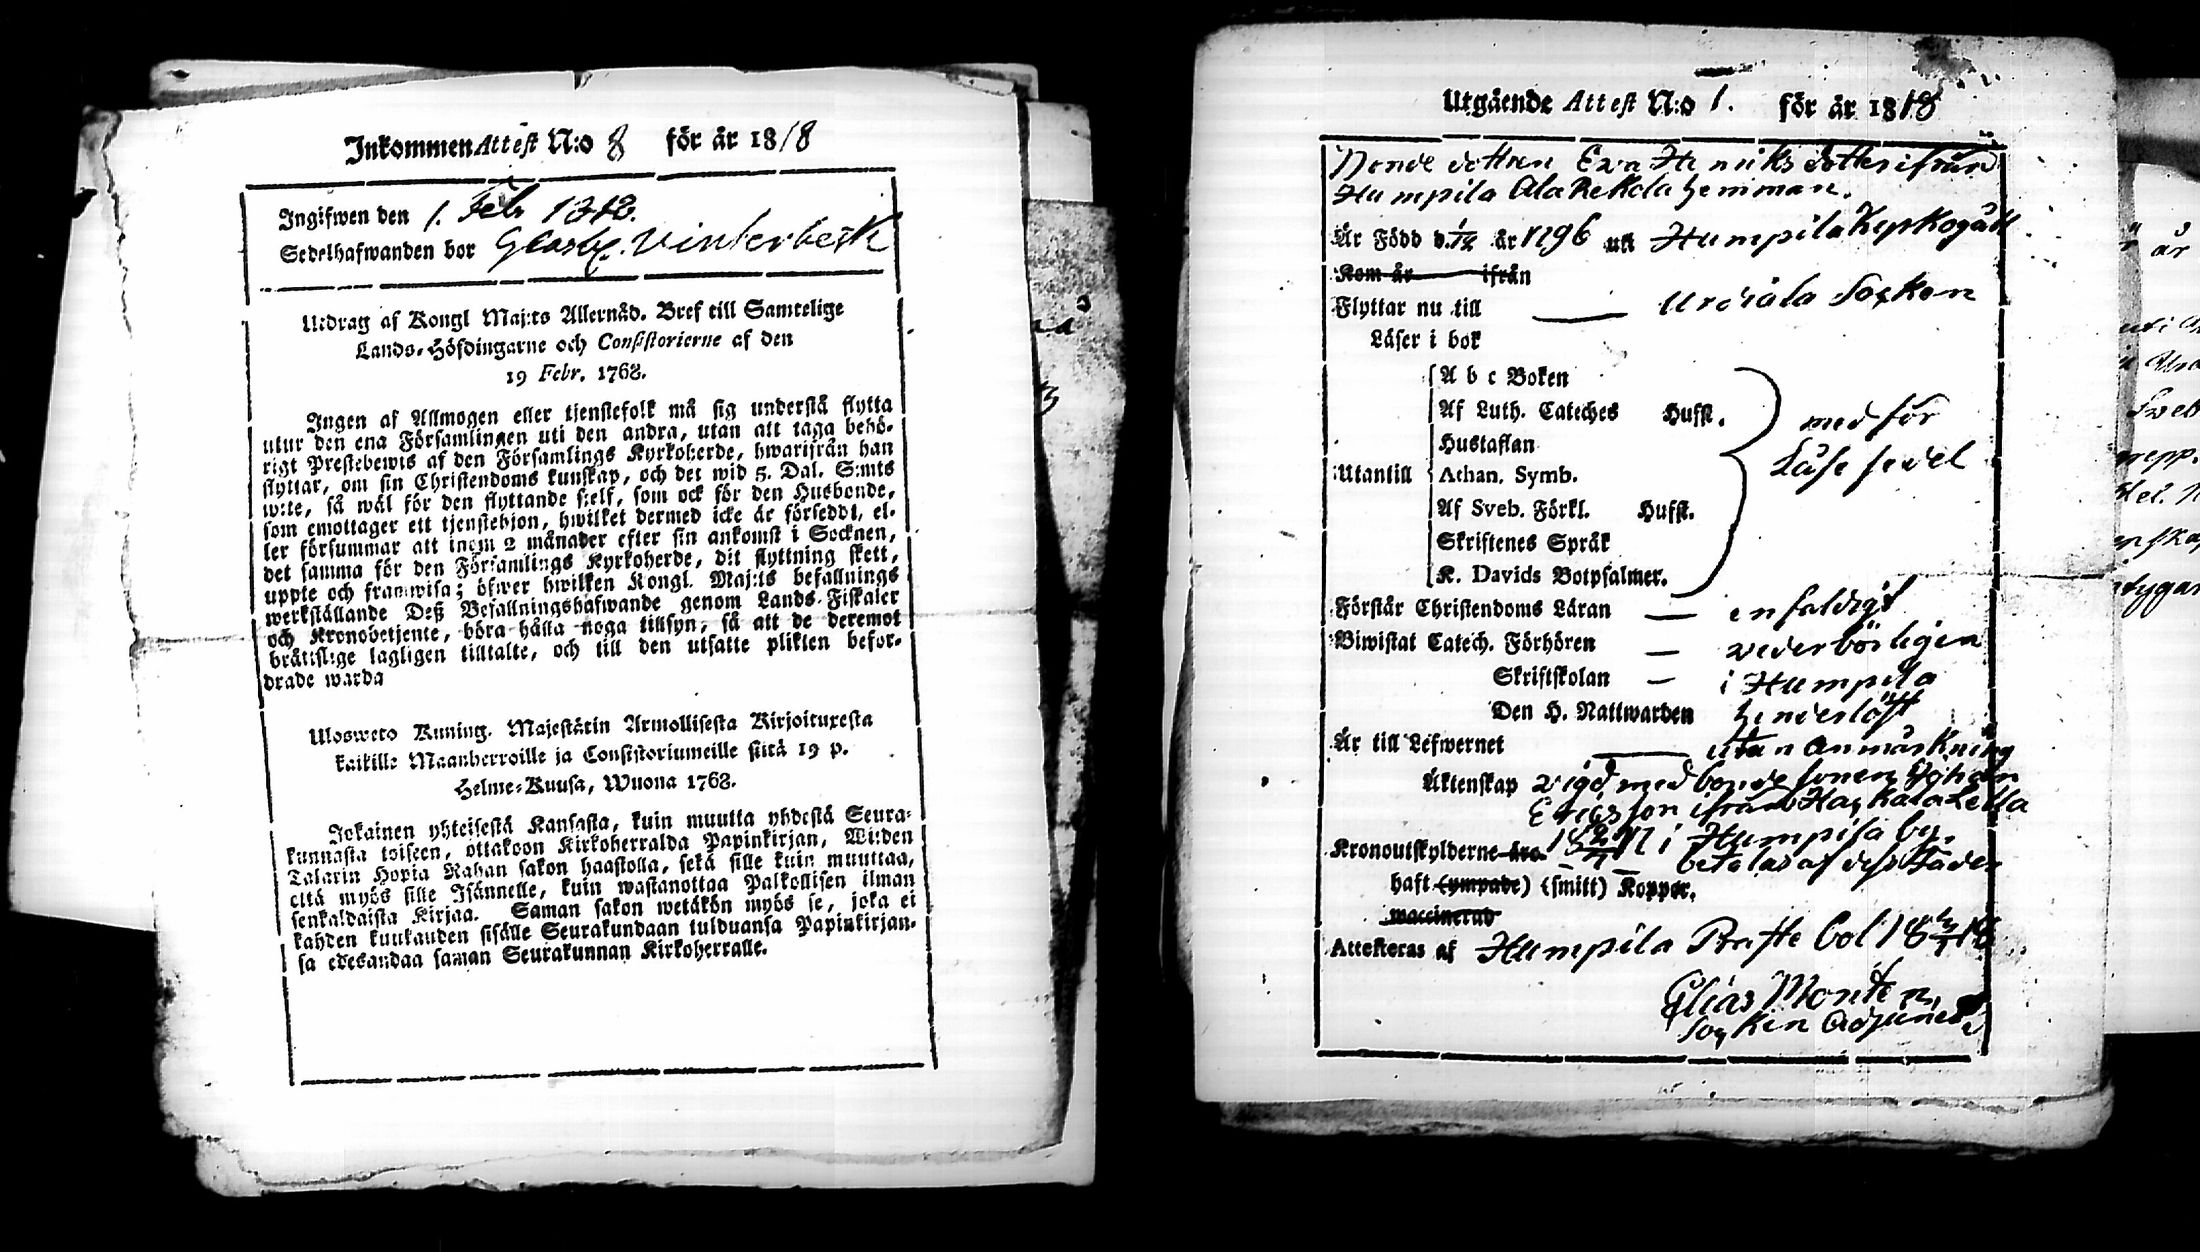 Inkommen Attest N:o 8 för år 1818
Ingifwen den 1. Feb. 1818.
Sedelhafwanden bor Glasbr. Vinterbeck
Utdrag af Kongl Maj:ts Allernåd. Bref till Samtelige
Lands-Höfdingarne och Consistorierne af den
19 Febr. 1768.
Ingen af Allmogen eller tjenstefolk må sig understå flytta
utur den ena Församlingen uti den andra, utan att taga behö-
rigt Prestebewis af den Församlings Kyrkoherde, hwarifrån han
flyttar, om sin Christendoms kunskap, och det wid 5. Dal. S:mts
wite, så wäl för den flyttande sjelf, som ock för den Husbonde,
som emottager ett tjenstehjon, hwilket dermed icke är försedt, el-
ler försummar att inom 2 månader efter sin ankomst i Socknen,
det samma för den Församlings Kyrkoherde, dit flyttning skett,
uppte och framwisa; öfwer hwilken Kongl. Maj:ts befallnings
werkställande Deß Befallningshafwande genom Lands-Fiskaler
och Kronobetjente, böra hålla noga tillsyn, så att de deremot
bråttslige lagligen tilltalte, och till den utsatte plikten befor-
drade warda
Ulosweto Kuning. Majestätin Armollisesta Kirjoituxesta
kaikille Maanherroille ja Consistoriumeille siitä 19 p.
Helme-Kuusa, Wuona 1768.
Jokainen yhteisestä Kansasta, kuin muutta yhdestä Seura-
kunnasta toiseen, ottakoon Kirkoherralda Papinkirjan, Wiiden
Talarin Hopia Rahan sakon haastolla, sekä sille kuin muuttaa,
että myös sille Isännelle, kuin wastanottaa Palkollisen ilman
senkaldaista Kirjaa. Saman sakon wetäkön myös se, joka ei
kahden kuukauden sisälle Seurakundaan tulduansa Papinkirjan-
sa edesandaa saman Seurakunnan Kirkoherralle.
Utgående Attest N:o 1. för år 1818
Bonde dottren Eva Henriks dotter ifrån
Humpila Ala Rekola hemman.
Är Född d. 1/12 år 1796 uti Humpila Kyrkogäll
Kom år ifrån
Flyttar nu till — Urdiala Sockn
Läser i bok
A b c Boken
Af Luth. Cateches Hufst.
Hustaflan
Utantill Athan. Symb.
Af Sveb. Förkl. Hufst.
Skriftenes Språk
K. Davids Botpsalmer.
med för
Läse sedel
Förstår Christendoms Läran — enfaldigt
Biwistat Catech. Förhören — vederbörligen
Skriftskolan — i Humpila
Den H. Nattwarden hinderlöst
Är till Lefwernet — utan anmärkning
Äktenskap vigd med bonde sonen Johan
Ericsson ifrån
i Humpila by.
Kronoutskylderne betalas af dess Fader
haft (ympade) (smitt) Koppor.
waccinerad
Attesteras af Humpila Præste bol
Elias Monten,
Sockn Adjunct